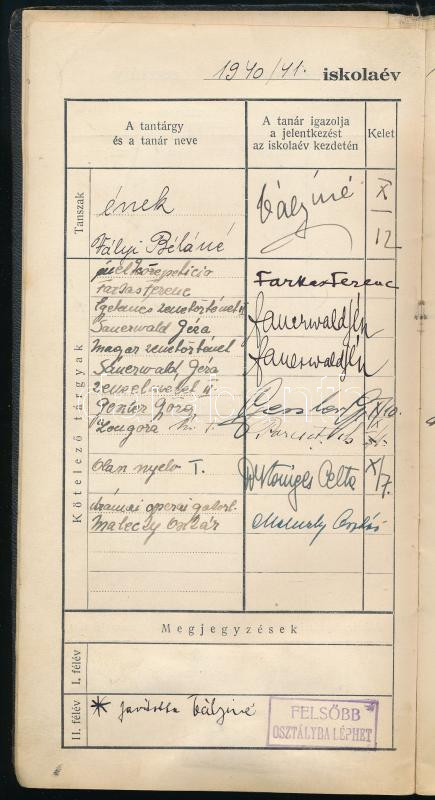 1940/41. iskolaév
A tantárgy
és a tanár neve
A tanár igazolja
a jelentkezést
az iskolaév kezdetén
Kelet
Tanszak
ének
Vályi Béláné
X
12
Kötelező tárgyak
énekkorepetíció
Farkas Ferenc
Farkas Ferenc
Egetemes zenetörténet II
Sauerwald Géza
Sauerwald Géza
Magyar zenetörténet
Sauerwald Géza
Sauerwald Géza
zeneelmélet II.
Genszer György
X/10.
Zongora
Olasz nyelv I.
X/7.
drámai operai gakorl.
Maleczky Oszkár
Maleczky Oszkár
Megjegyzések
I. félév
II. félév
* javította
FELSŐBB
OSZTÁLYBA LÉPHET